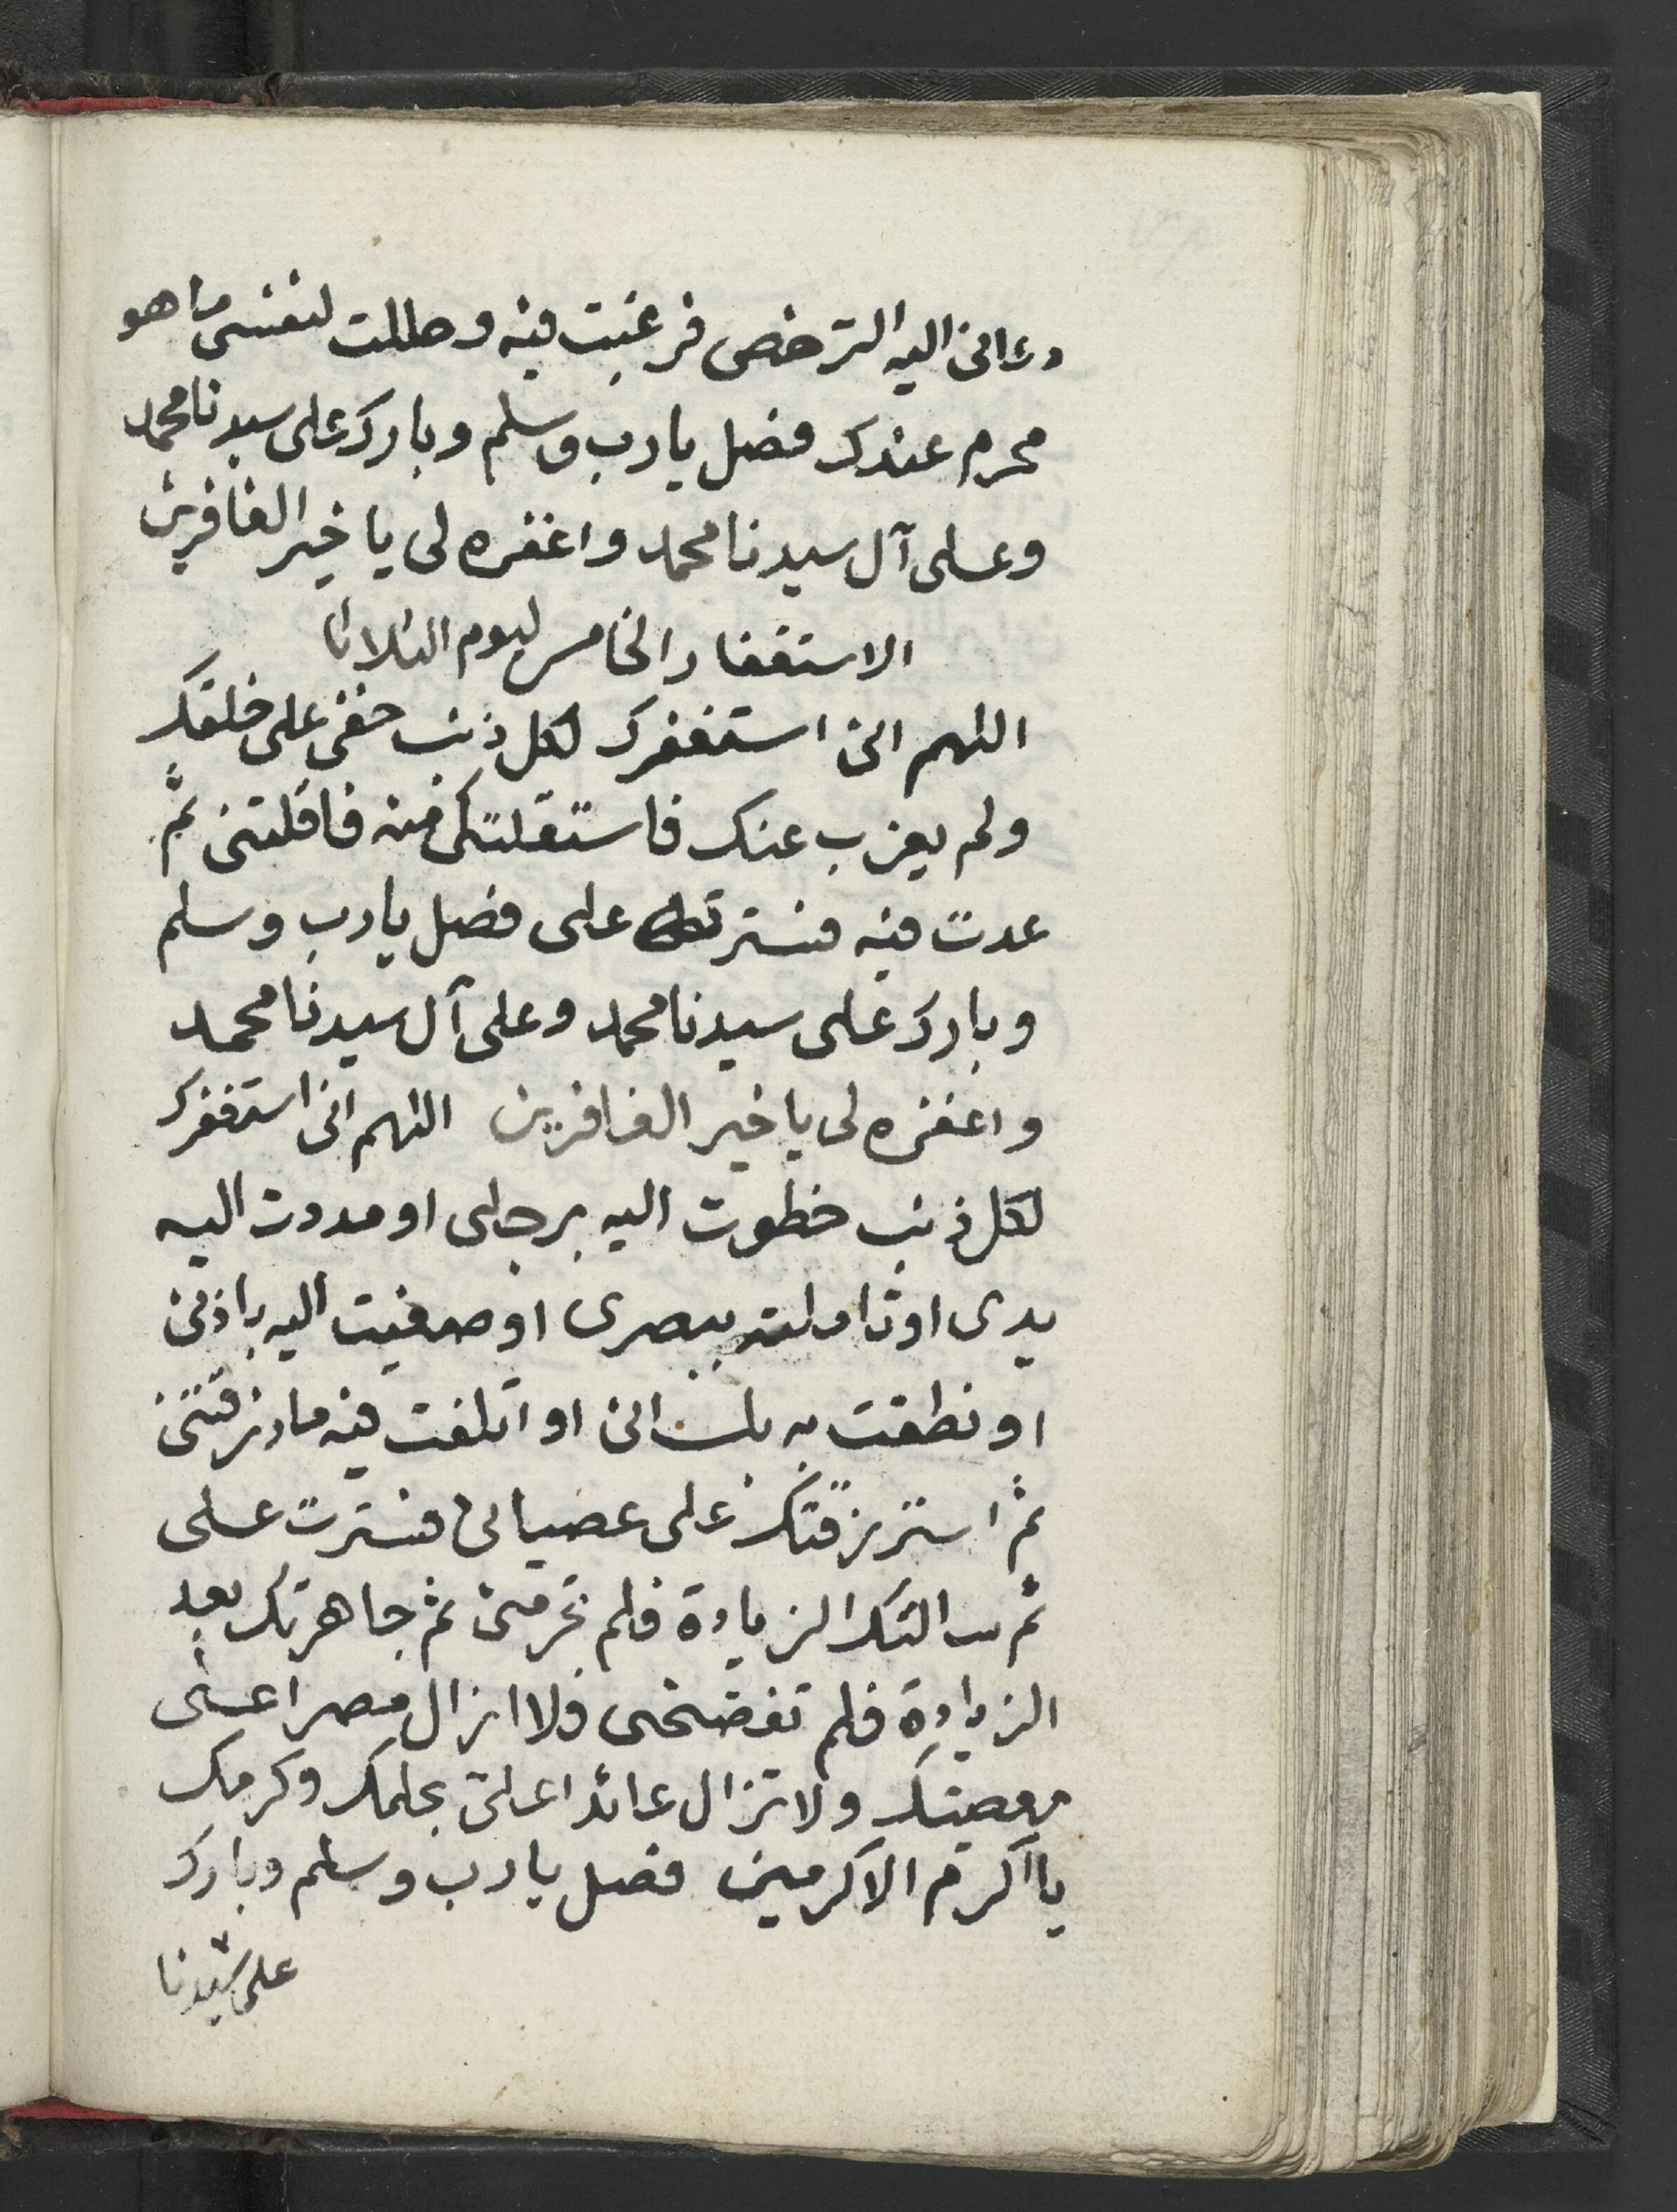 دعانى اليه الترخص فرغبت فيه وحللت لنفسى ما هو
محرم عندك فصل يا رب وسلم وبارك على سيدنا محمد
وعلى آل سيدنا محمد واغفره لى يا خير الغافرين
الاستغفار الخامس ليوم الثلاثا
اللهم انى استغفرك لكل ذنب خفى على خلقك
ولم يعزب عنك فاستقلتك منه فاقلتنى ثم
عدت فيه فسترته على فصل يا رب وسلم
وبارك على سيدنا محمد وعلى آل سيدنا محمد
واغفره لى يا خير الغافرين اللهم انى استغفرك
لكل ذنب خطوت اليه برجلى او مددت اليه
يدى او تاملته ببصرى او صغيت اليه باذنى
او نطقت به بلسانى او اتلفت فيه ما رزقتنى
ثم استرزقتك على عصيانى فسترت على
ثم سالتك الزيادة فلم تحرمنى ثم جاهرتك بعد
الزيادة فلم تفضحنى فلا ازال مصرا على
معصيتك ولا تزال عائدا على بحلمك وكرمك
يا اكرم الاكرمين فصل يا رب وسلم وبارك
على سيدنا